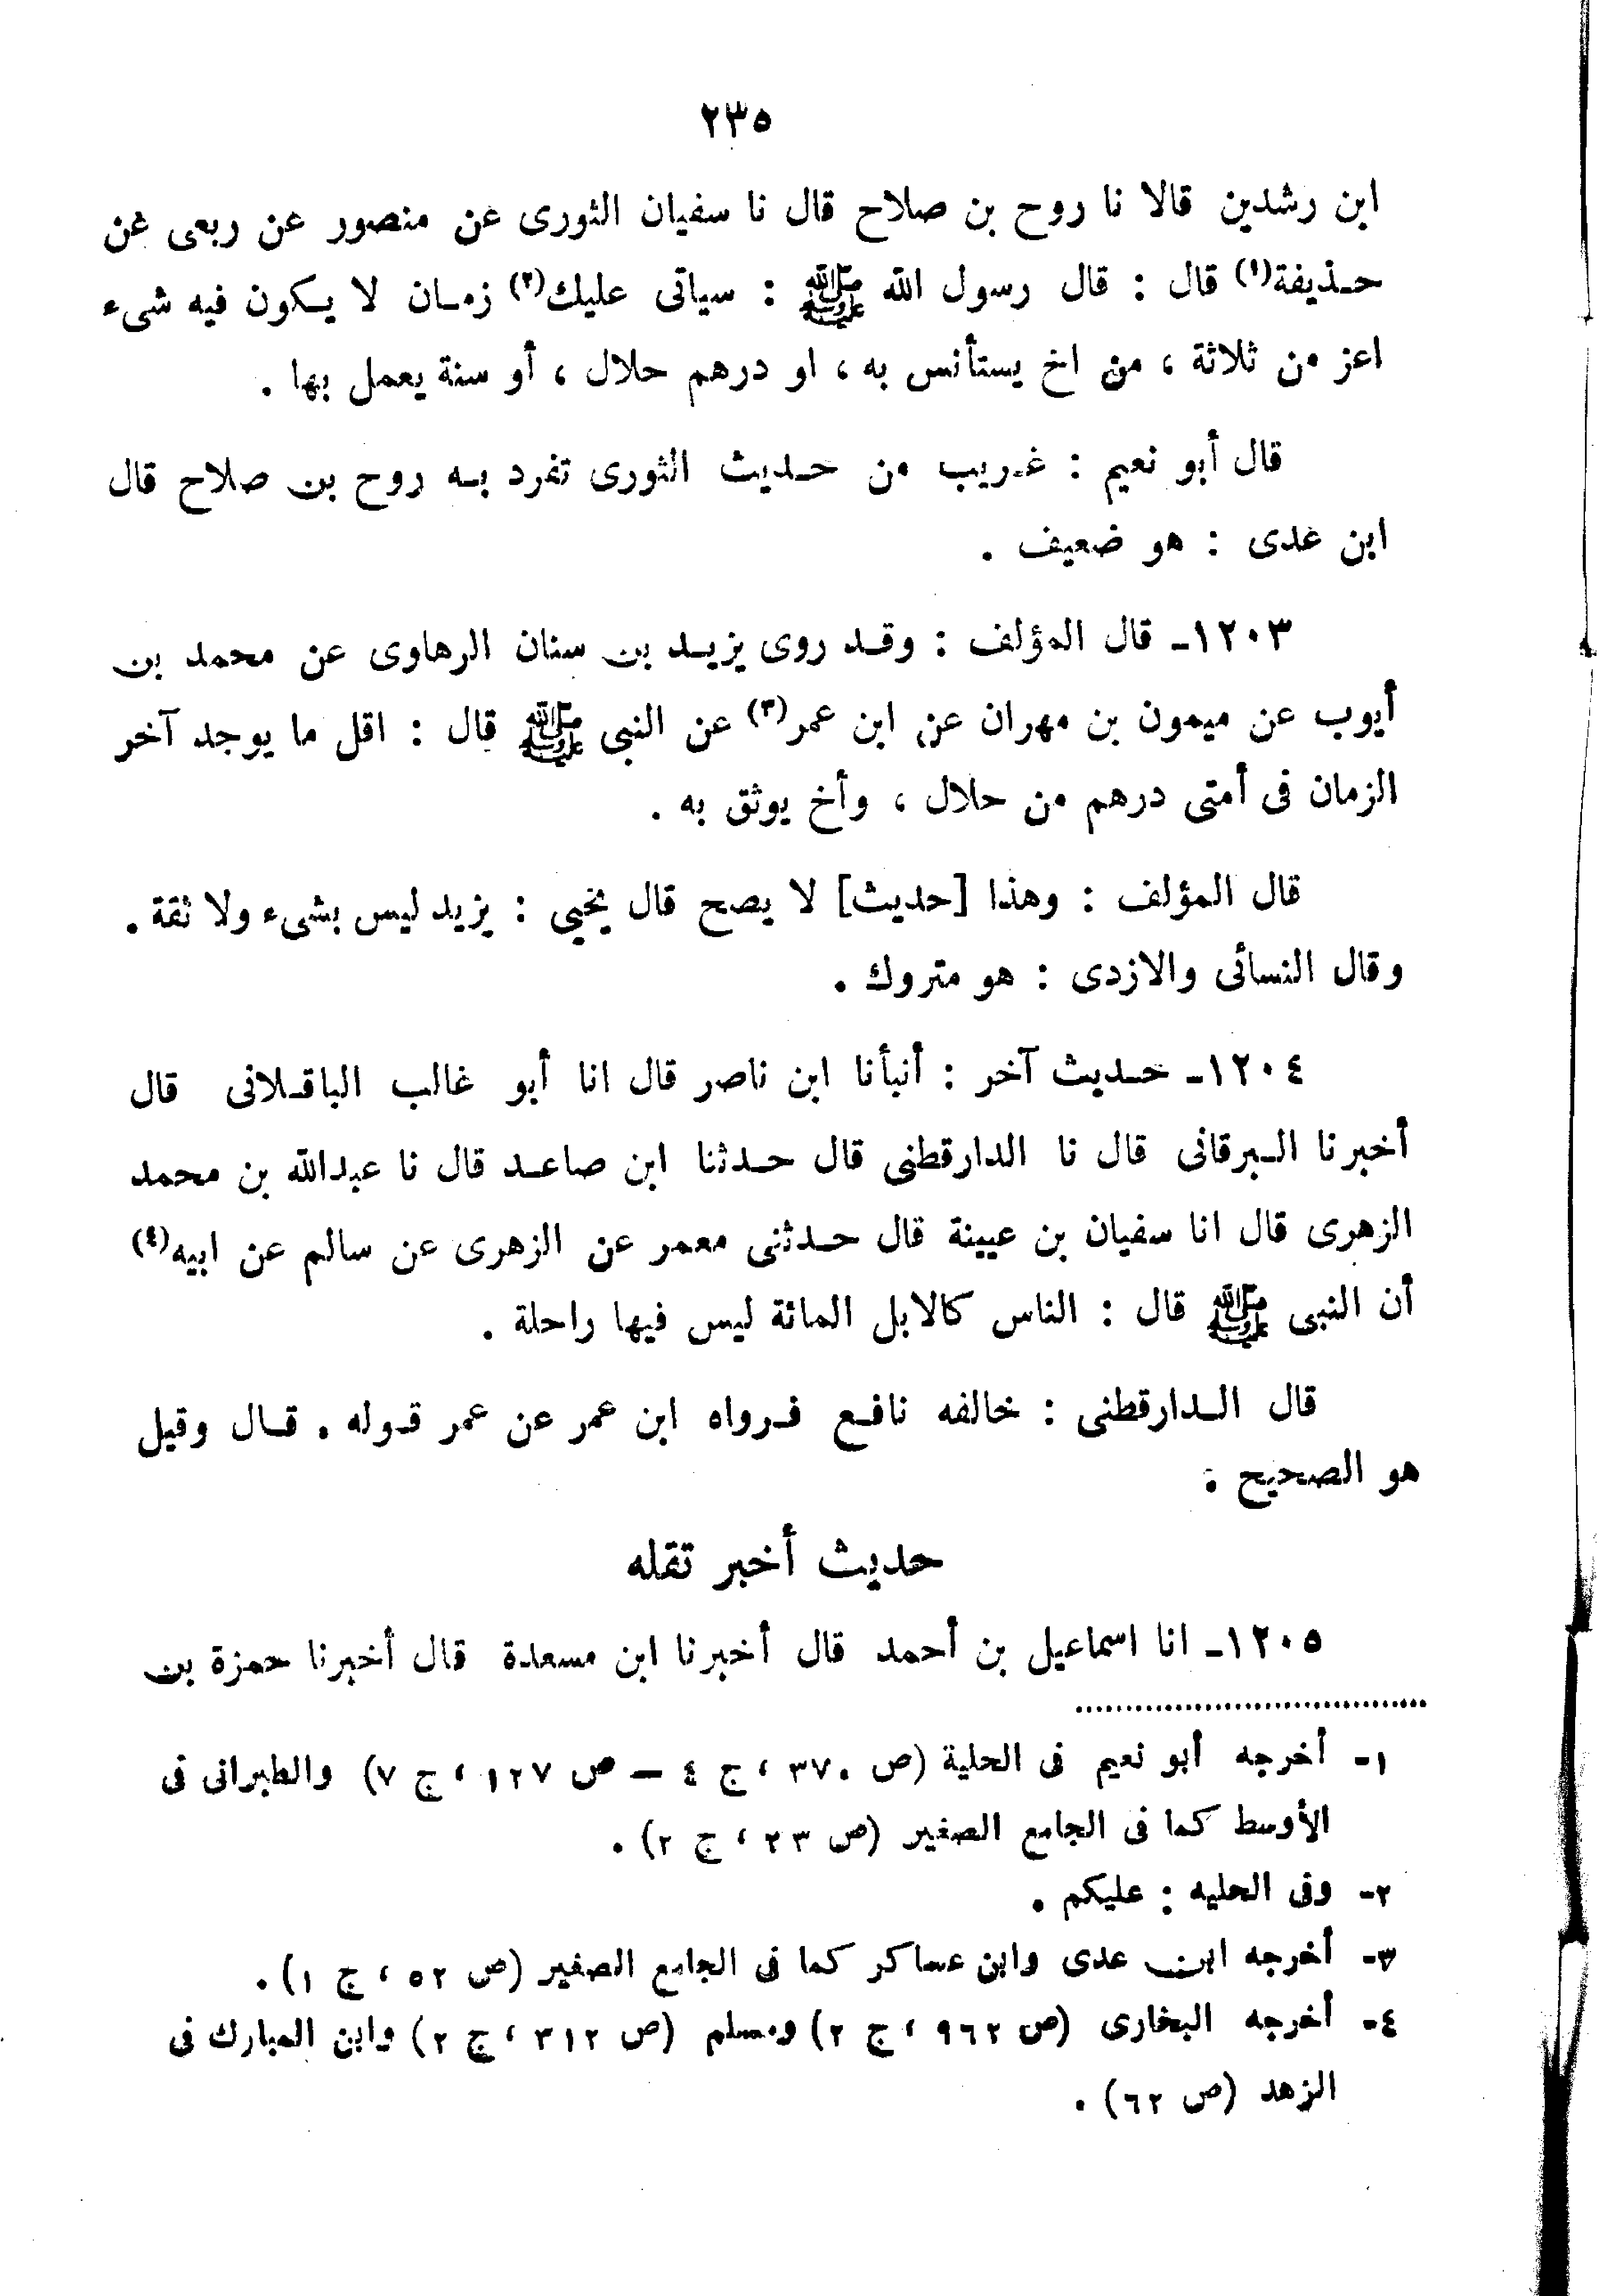 ٢٣٥
ابن رشدين قالا نا روح بن صلاح قال نا سفيان الثورى عن منصور عن ربعى عن
حـذيفة(١) قال : قال رسول الله ﷺ : سياتى عليك(٢) زمـان لا يـكون فيه شىء
اعز من ثلاثة ، من اخ يستأنس به ، او درهم حلال ، أو سنة يعمل بها .
قال أبو نعيم : غـريب من حـديث الثورى تفرد بـه روح بن صلاح قال
ابن عدى : هو ضعيف .
١٢٠٣ـ قال المؤلف : وقـد روى يزيـد بن سنان الرهاوى عن محمد بن
أيوب عن ميمون بن مهران عن ابن عمر(٣) عن النبى ﷺ قال : اقل ما يوجد آخر
الزمان فى أمتى درهم من حلال ، وأخ يوثق به .
قال المؤلف : وهذا [حديث] لا يصح قال يحيى : يزيد ليس بشىء ولا ثقة .
وقال النسائى والازدى : هو متروك .
١٢٠٤ـ حـديث آخر : أنبأنا ابن ناصر قال انا أبو غالب الباقـلانى قال
أخبرنا الـبرقانى قال نا الدارقطنى قال حـدثنا ابن صاعـد قال نا عبدالله بن محمد
الزهرى قال انا سفيان بن عيينة قال حـدثنى معمر عن الزهرى عن سالم عن ابيه(٤)
أن النبى ﷺ قال : الناس كالابل المائة ليس فيها راحلة .
قال الـدارقطنى : خالفه نافـع فـرواه ابن عمر عن عمر قـوله . قـال وقيل
هو الصحيح .
حديث أخبر تقله
١٢٠٥ـ انا اسماعيل بن أحمد قال أخبرنا ابن مسعدة قال أخبرنا حمزة بن
١ـ أخرجه أبو نعيم فى الحلية (ص ٣٧٠ ، ج ٤ — ص ١٢٧ ، ج ٧) والطبرانى فى
الأوسط كما فى الجامع الصغير (ص ٢٣ ، ج ٢) .
٢ـ وفى الحليه : عليكم .
٣ـ أخرجه ابن عدى وابن عساكر كما فى الجامع الصغير (ص ٥٢ ، ج ١) .
٤ـ أخرجه البخارى (ص ٩٦٢ ، ج ٢) ومسلم (ص ٣١٢ ، ج ٢) وابن المبارك فى
الزهد (ص ٦٢) .